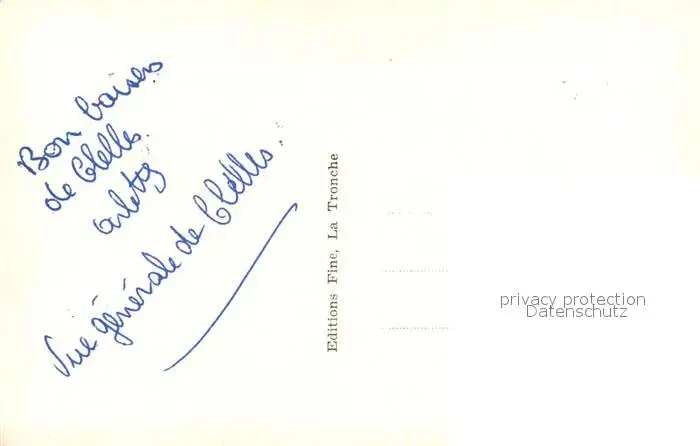 Bon baisers
de Clelles
Arletty
Vue générale de Clelles.
Editions Fine, La Tronche
privacy protection
Datenschutz